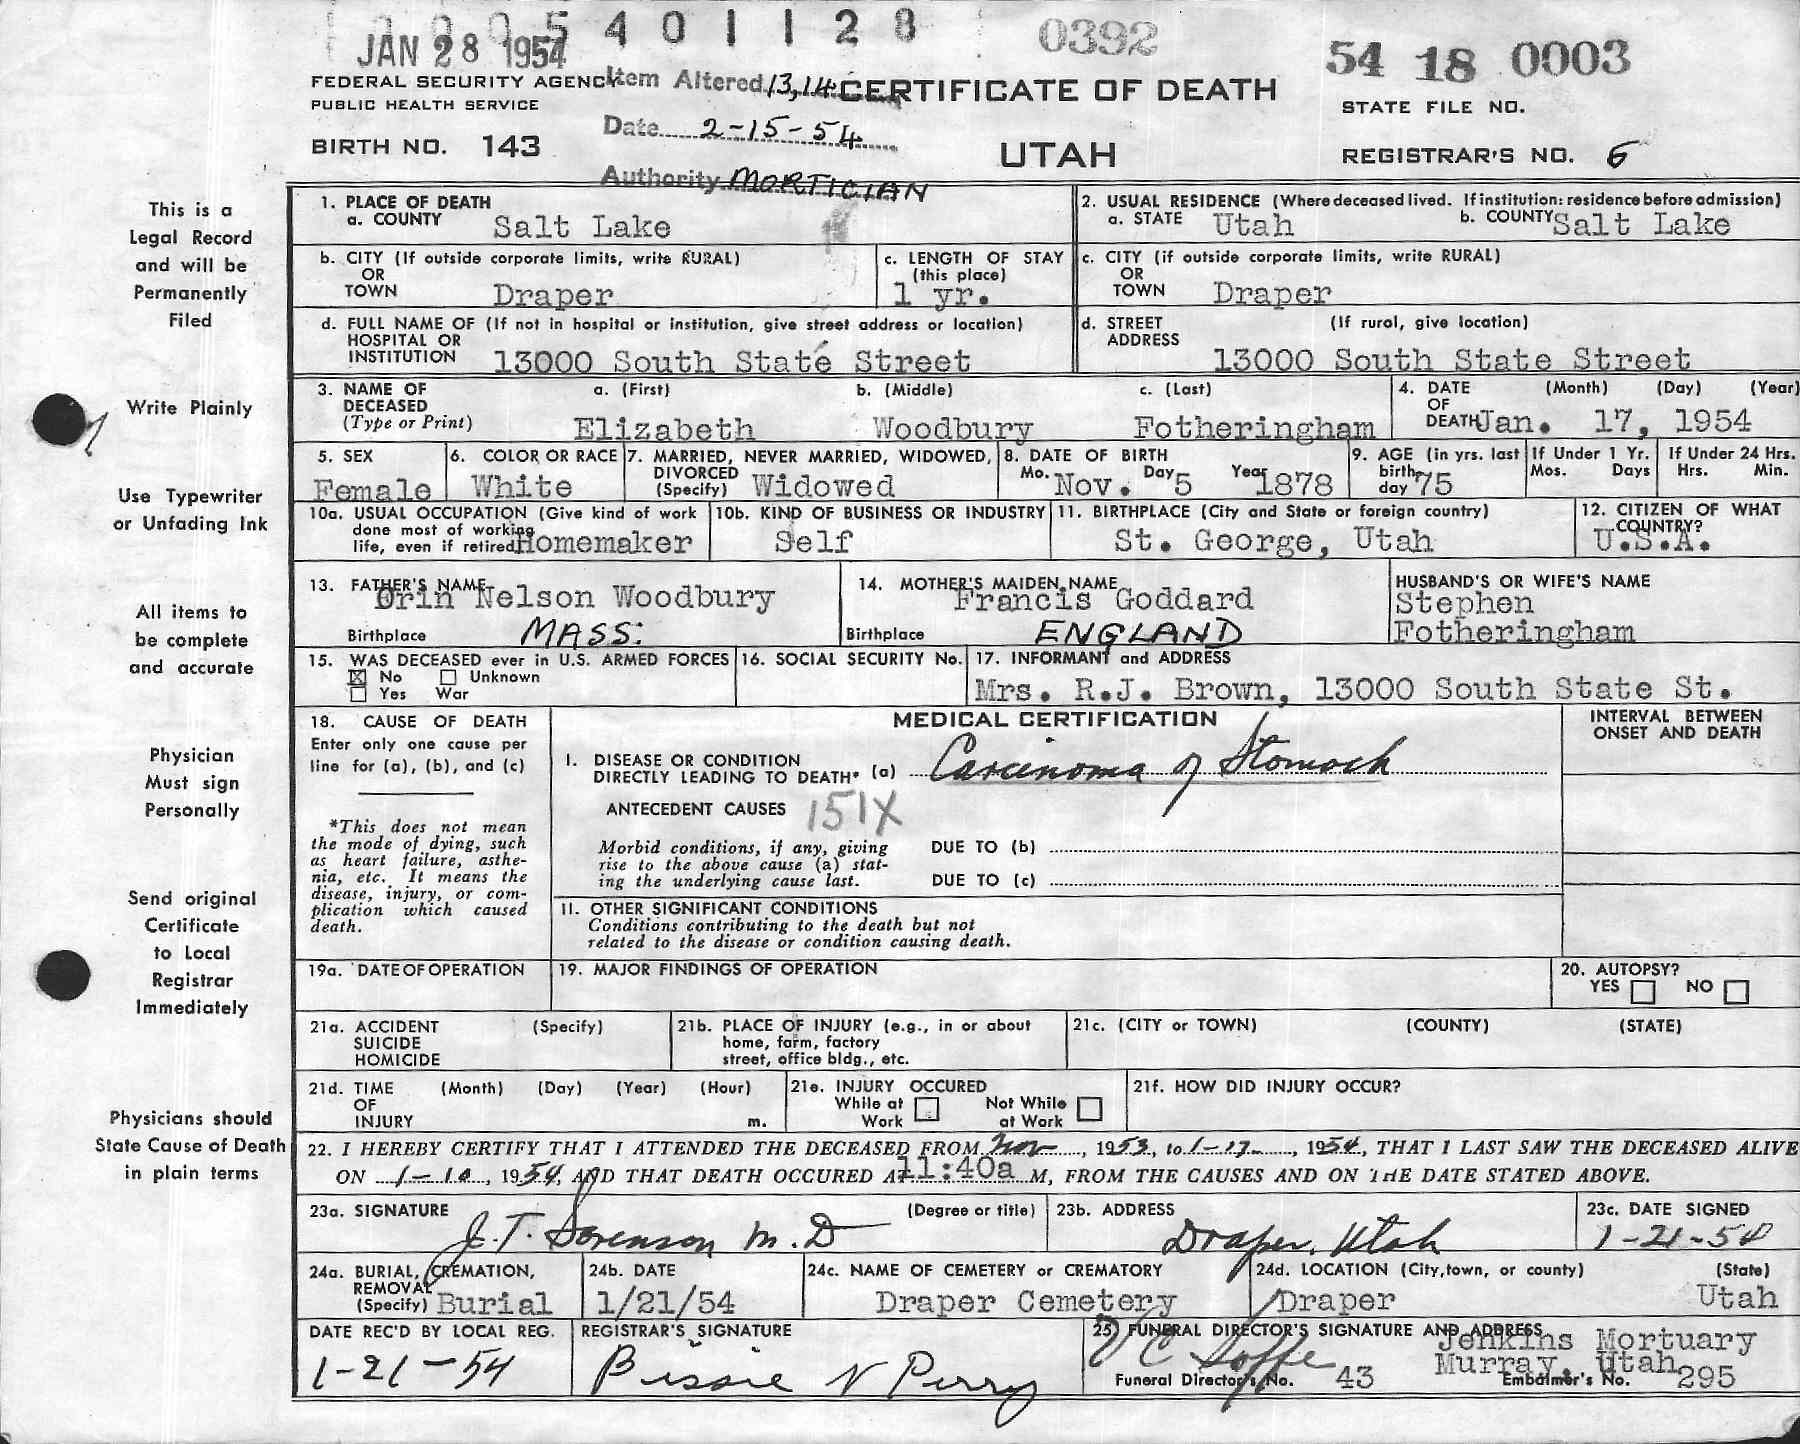 005401128
JAN 28 1954
0392
54 18 0003
FEDERAL SECURITY AGENCY
Item Altered 13,14
CERTIFICATE OF DEATH
PUBLIC HEALTH SERVICE
STATE FILE NO.
Date 2-15-54
BIRTH NO. 143
UTAH
REGISTRAR'S NO. 6
Authority MORTICIAN
This is a
Legal Record
and will be
Permanently
Filed
Write Plainly
Use Typewriter
or Unfading Ink
All items to
be complete
and accurate
Physician
Must sign
Personally
Send original
Certificate
to Local
Registrar
Immediately
Physicians should
State Cause of Death
in plain terms
1. PLACE OF DEATH
a. COUNTY Salt Lake
2. USUAL RESIDENCE (Where deceased lived. If institution: residence before admission)
a. STATE Utah b. COUNTY Salt Lake
b. CITY (If outside corporate limits, write RURAL)
OR
TOWN Draper
c. LENGTH OF STAY
(this place)
1 yr.
c. CITY (if outside corporate limits, write RURAL)
OR
TOWN Draper
d. FULL NAME OF (If not in hospital or institution, give street address or location)
HOSPITAL OR
INSTITUTION 13000 South State Street
d. STREET (If rural, give location)
ADDRESS
13000 South State Street
3. NAME OF a. (First) b. (Middle) c. (Last)
DECEASED
(Type or Print) Elizabeth Woodbury Fotheringham
4. DATE (Month) (Day) (Year)
OF
DEATH Jan. 17, 1954
5. SEX
Female
6. COLOR OR RACE
White
7. MARRIED, NEVER MARRIED, WIDOWED,
DIVORCED
(Specify) Widowed
8. DATE OF BIRTH
Mo. Nov. Day 5 Year 1878
9. AGE (in yrs. last
birth-
day 75
If Under 1 Yr.
Mos. Days
If Under 24 Hrs.
Hrs. Min.
10a. USUAL OCCUPATION (Give kind of work
done most of working
life, even if retired) Homemaker
10b. KIND OF BUSINESS OR INDUSTRY
Self
11. BIRTHPLACE (City and State or foreign country)
St. George, Utah
12. CITIZEN OF WHAT
COUNTRY?
U.S.A.
13. FATHER'S NAME
Orin Nelson Woodbury
Birthplace MASS.
14. MOTHER'S MAIDEN NAME
Francis Goddard
Birthplace ENGLAND
HUSBAND'S OR WIFE'S NAME
Stephen
Fotheringham
15. WAS DECEASED ever in U.S. ARMED FORCES
X No Unknown
Yes War
16. SOCIAL SECURITY No.
17. INFORMANT and ADDRESS
Mrs. R.J. Brown, 13000 South State St.
18. CAUSE OF DEATH
Enter only one cause per
line for (a), (b), and (c)
*This does not mean
the mode of dying, such
as heart failure, asthe-
nia, etc. It means the
disease, injury, or com-
plication which caused
death.
MEDICAL CERTIFICATION
INTERVAL BETWEEN
ONSET AND DEATH
I. DISEASE OR CONDITION
DIRECTLY LEADING TO DEATH* (a) Carcinoma of Stomach
ANTECEDENT CAUSES 151X
Morbid conditions, if any, giving
rise to the above cause (a) stat-
ing the underlying cause last.
DUE TO (b)
DUE TO (c)
II. OTHER SIGNIFICANT CONDITIONS
Conditions contributing to the death but not
related to the disease or condition causing death.
19a. DATE OF OPERATION
19. MAJOR FINDINGS OF OPERATION
20. AUTOPSY?
YES NO
21a. ACCIDENT (Specify)
SUICIDE
HOMICIDE
21b. PLACE OF INJURY (e.g., in or about
home, farm, factory
street, office bldg., etc.
21c. (CITY or TOWN) (COUNTY) (STATE)
21d. TIME (Month) (Day) (Year) (Hour)
OF
INJURY m.
21e. INJURY OCCURED
While at Work
Not While at Work
21f. HOW DID INJURY OCCUR?
22. I HEREBY CERTIFY THAT I ATTENDED THE DECEASED FROM Nov, 1953, to 1-17, 1954, THAT I LAST SAW THE DECEASED ALIVE
ON 1-10, 1954, AND THAT DEATH OCCURED AT 11:40a M, FROM THE CAUSES AND ON THE DATE STATED ABOVE.
23a. SIGNATURE (Degree or title)
J.T. Sorenson M.D
23b. ADDRESS
Draper, Utah
23c. DATE SIGNED
1-21-54
24a. BURIAL, CREMATION,
REMOVAL
(Specify) Burial
24b. DATE
1/21/54
24c. NAME OF CEMETERY or CREMATORY
Draper Cemetery
24d. LOCATION (City, town, or county) (State)
Draper Utah
DATE REC'D BY LOCAL REG.
1-21-54
REGISTRAR'S SIGNATURE
Bessie N Perry
25. FUNERAL DIRECTOR'S SIGNATURE AND ADDRESS
Jenkins Mortuary
Murray, Utah
Funeral Director's No. 43 Embalmer's No. 295